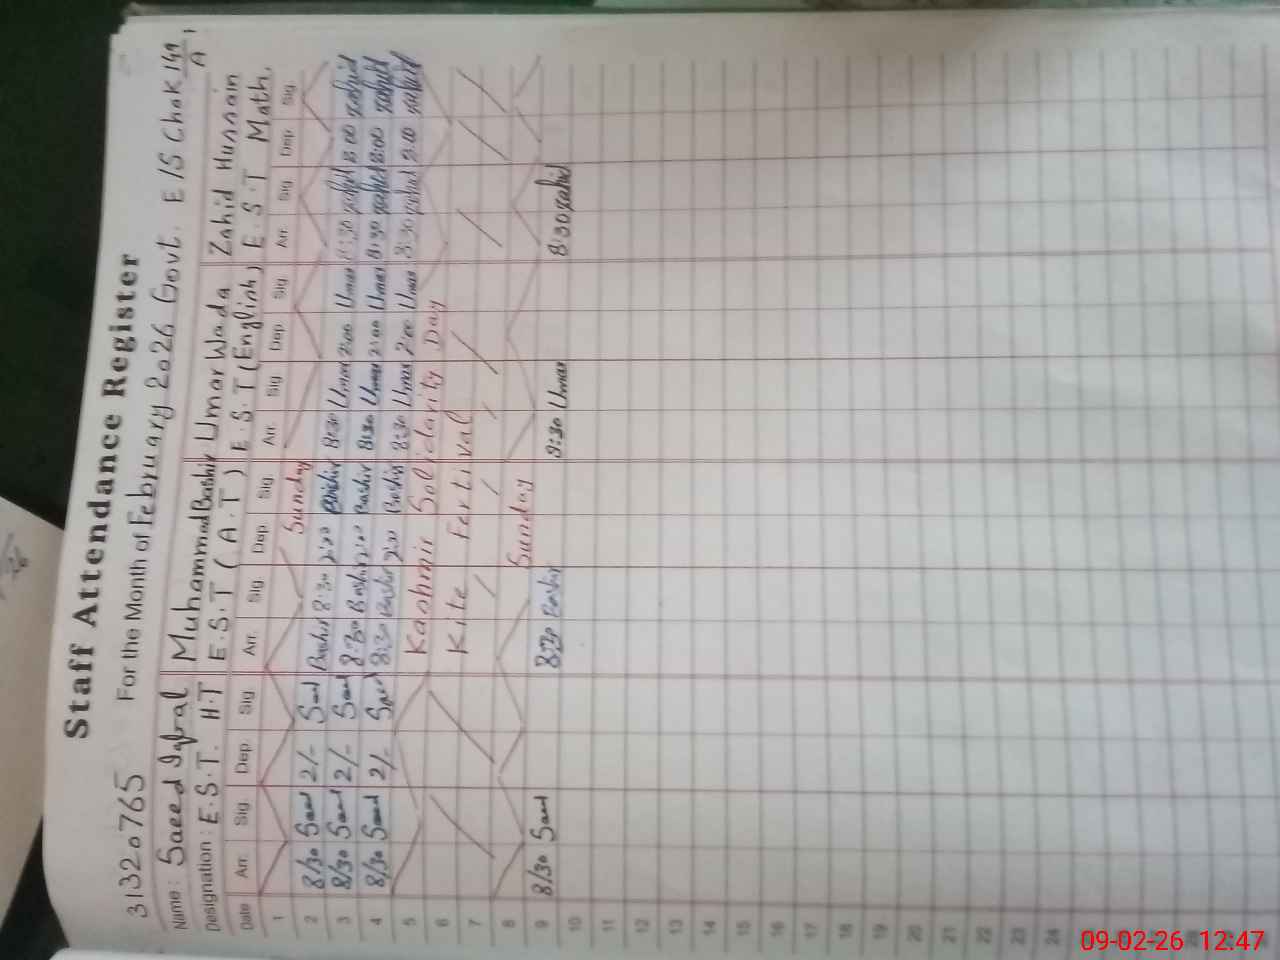 Staff Attendance Register
31320765 For the Month of February 2026 Govt. E/S Chak 149/A,
Name: Saeed Iqbal Muhammad Bashir Umar Wada Zahid Hussain
Designation: E.S.T. H.T E.S.T (A.T) E.S.T (English) E.S.T Math.
Date Arr. Sig. Dep. Sig Arr. Sig Dep Sig Arr. Sig Dep Sig Arr. Sig Dep Sig
1 Sunday
2 8/30 Saed 2/- Saed Bashir 8:30 2:00 Bashir 8:30 Umar 2:00 Umar 8:30 Zahid 2:00 Zahid
3 8/30 Saed 2/- Saed 8:30 Bashir 2:00 Bashir 8:30 Umar 2:00 Umar 8:30 Zahid 2:00 Zahid
4 8/30 Saed 2/- Saed 8:30 Bashir 2:00 Bashir 8:30 Umar 2:00 Umar 8:30 Zahid 2:00 Zahid
5 Kashmir Solidarity Day
6 Kite Festival
7
8 Sunday
9 8/30 Saed 8:30 Bashir 8:30 Umar 8:30 Zahid
10
11
12
13
14
15
16
17
18
19
20
21
22
23
24
09-02-26 12:47